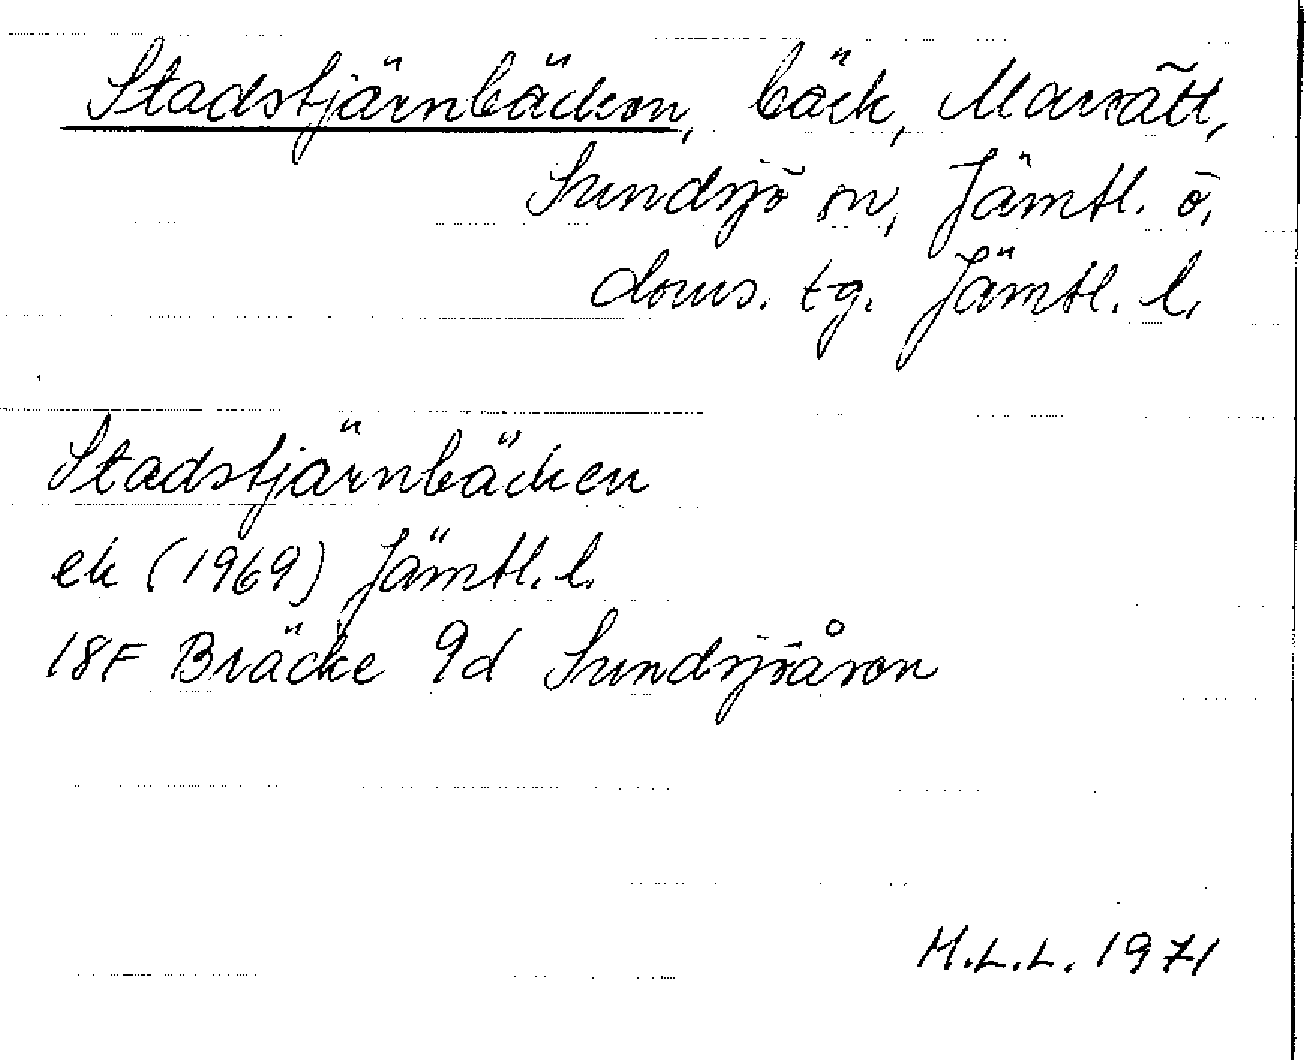 Stadstjärnbäcken, bäck, Marsätt,
Sundsjö sn, Jämtl. ö.
doms. tg. Jämtl. l.
Stadstjärnbäcken
ek (1969) Jämtl. l.
18F Bräcke 9d Sundsjöåsen
M.L.L. 1971